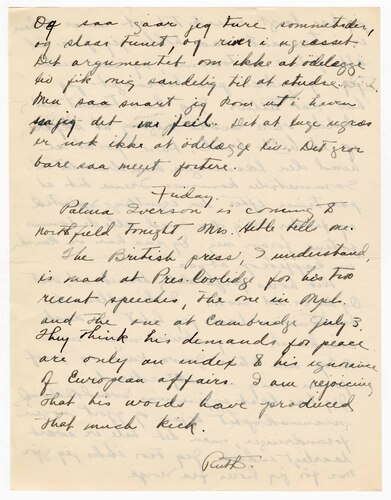 Og saa gaar jeg ture sommetider,
og slaar tunet, og river i ugrasset.
Det argumentet om ikke at odelægge
liv fik mig sandelig til at studse.
Men saa snart jeg kom ut i haven
saa jeg det var feil. Det at luge ugras
er nok ikke at ödelægge liv. Det gror
bare saa meget fortere.
Friday
Palma Iverson is coming to
Northfield tonight Mrs. Hetle tell me.
The British press, I understand,
is mad at Pres. Coolidge for his two
recent speeches, the one in Mpls.
and the one at Cambridge July 3.
They think his demands for peace
are only an index to his ignorance
of European affairs. I am rejoicing
that his words have produced
that much kick.
Ruth.